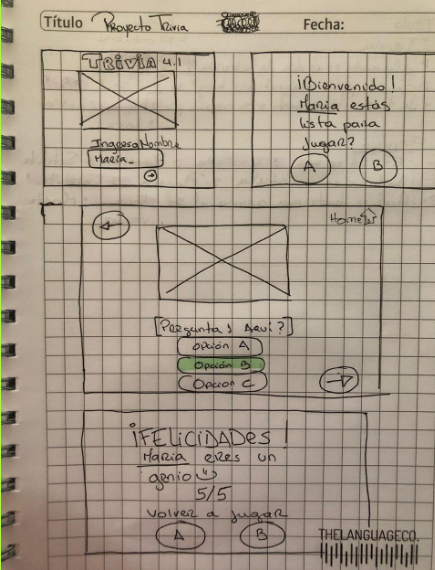 Título Proyecto Trivia
Fecha:
TRIVIA 4.1
Ingresa Nombre
María_
¡Bienvenido!
María estás
lista para
jugar?
A B
Home
[Pregunta 1 Aquí?]
Opción A
Opción B
Opción C
¡FELICIDADES!
María eres un
genio
5/5
Volver a jugar
A B
THELANGUAGECO.